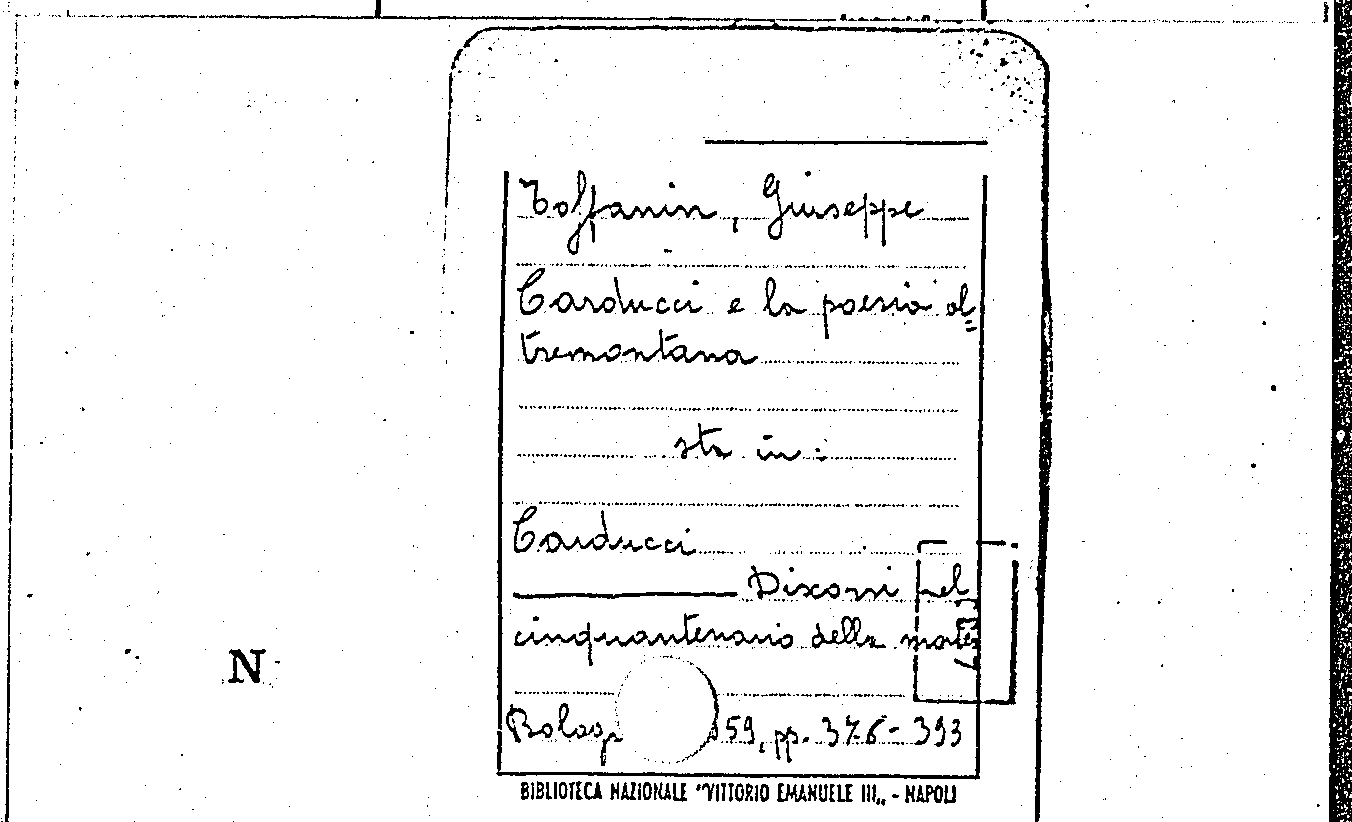 Toffanin, Giuseppe
Carducci e la poesia ol=
tremontana
sta in:
Carducci
Discorsi nel
cinquantenario della morte
N
Bologn 959, pp. 376-393
BIBLIOTECA NAZIONALE "VITTORIO EMANUELE III„ - NAPOLI